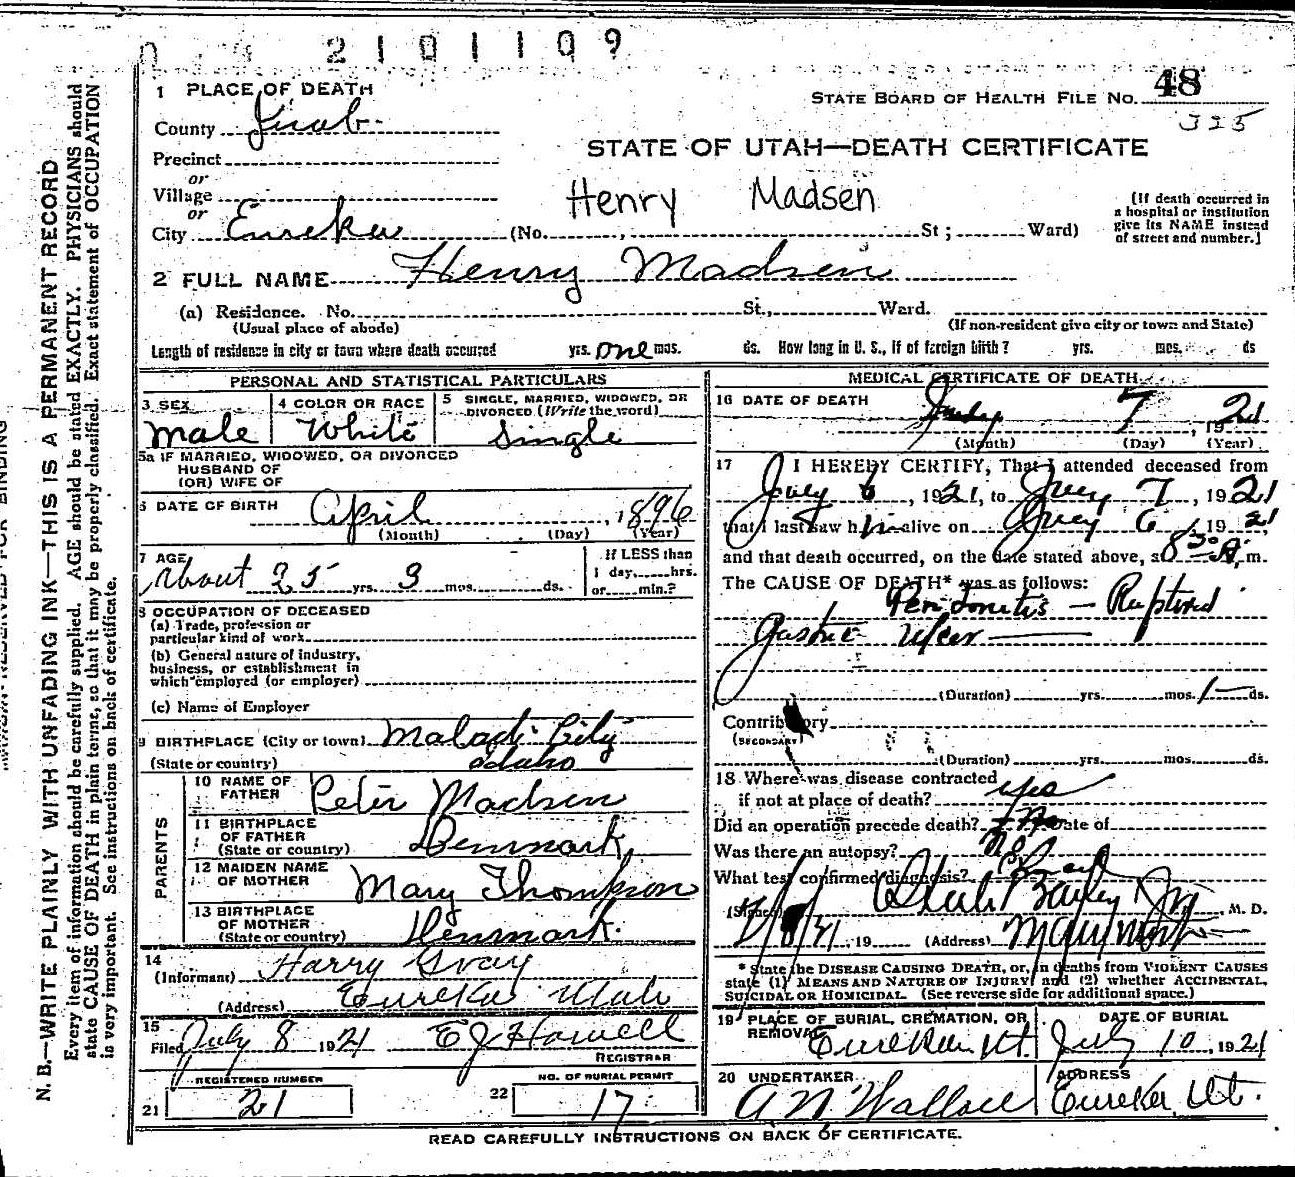 2101109
1 PLACE OF DEATH
STATE BOARD OF HEALTH FILE NO. 48
325
County Juab
STATE OF UTAH—DEATH CERTIFICATE
Precinct
or
Village
Henry Madsen
(If death occurred in a hospital or institution give its NAME instead of street and number.]
or
City Eureka (No. , St ; Ward)
2 FULL NAME Henry Madsen
(a) Residence. No. St., Ward.
(Usual place of abode) (If non-resident give city or town and State)
Length of residence in city or town where death occurred yrs. one mos. ds. How long in U. S., if of foreign birth? yrs. mos. ds
PERSONAL AND STATISTICAL PARTICULARS
3 SEX Male
4 COLOR OR RACE White
5 SINGLE, MARRIED, WIDOWED, OR DIVORCED (Write the word) Single
5a IF MARRIED, WIDOWED, OR DIVORCED
HUSBAND OF
(OR) WIFE OF
6 DATE OF BIRTH April , 1896
(Month) (Day) (Year)
7 AGE About 25 yrs. 3 mos. ds.
If LESS than
1 day, hrs.
or min.?
8 OCCUPATION OF DECEASED
(a) Trade, profession or
particular kind of work
(b) General nature of industry,
business, or establishment in
which employed (or employer)
(c) Name of Employer
9 BIRTHPLACE (City or town) Malad City
(State or country) Idaho
PARENTS
10 NAME OF FATHER Peter Madsen
11 BIRTHPLACE OF FATHER (State or country) Denmark
12 MAIDEN NAME OF MOTHER Mary Thompson
13 BIRTHPLACE OF MOTHER (State or country) Denmark.
14
(Informant) Harry Gray
(Address) Eureka Utah
15
Filed July 8 1921 E J Howell
REGISTRAR
REGISTERED NUMBER
21 21
NO. OF BURIAL PERMIT
22 17
MEDICAL CERTIFICATE OF DEATH
16 DATE OF DEATH July 7, 1921
(Month) (Day) (Year)
17 I HEREBY CERTIFY, That I attended deceased from
July 6, 1921, to July 7, 1921
that I last saw him alive on July 6, 1921
and that death occurred, on the date stated above, at 8 30 A. m.
The CAUSE OF DEATH* was as follows:
Peritonitis — Ruptured
Gastric Ulcer
(Duration) yrs. mos. 1 ds.
Contributory
(SECONDARY)
(Duration) yrs. mos. ds.
18 Where was disease contracted
if not at place of death? yes
Did an operation precede death? No Date of
Was there an autopsy? No
What test confirmed diagnosis?
(Signed) Steele Bailey Jr M. D.
19 (Address)
* State the DISEASE CAUSING DEATH, or, in deaths from VIOLENT CAUSES
state (1) MEANS AND NATURE OF INJURY and (2) whether ACCIDENTAL,
SUICIDAL OR HOMICIDAL. (See reverse side for additional space.)
19 PLACE OF BURIAL, CREMATION, OR REMOVAL Eureka Ut.
DATE OF BURIAL July 10, 1921
20 UNDERTAKER A. N. Wallace
ADDRESS Eureka, Ut.
READ CAREFULLY INSTRUCTIONS ON BACK OF CERTIFICATE.
N. B.—WRITE PLAINLY WITH UNFADING INK—THIS IS A PERMANENT RECORD
Every item of information should be carefully supplied. AGE should be stated EXACTLY. PHYSICIANS should
state CAUSE OF DEATH in plain terms, so that it may be properly classified. Exact statement of OCCUPATION
is very important. See instructions on back of certificate.